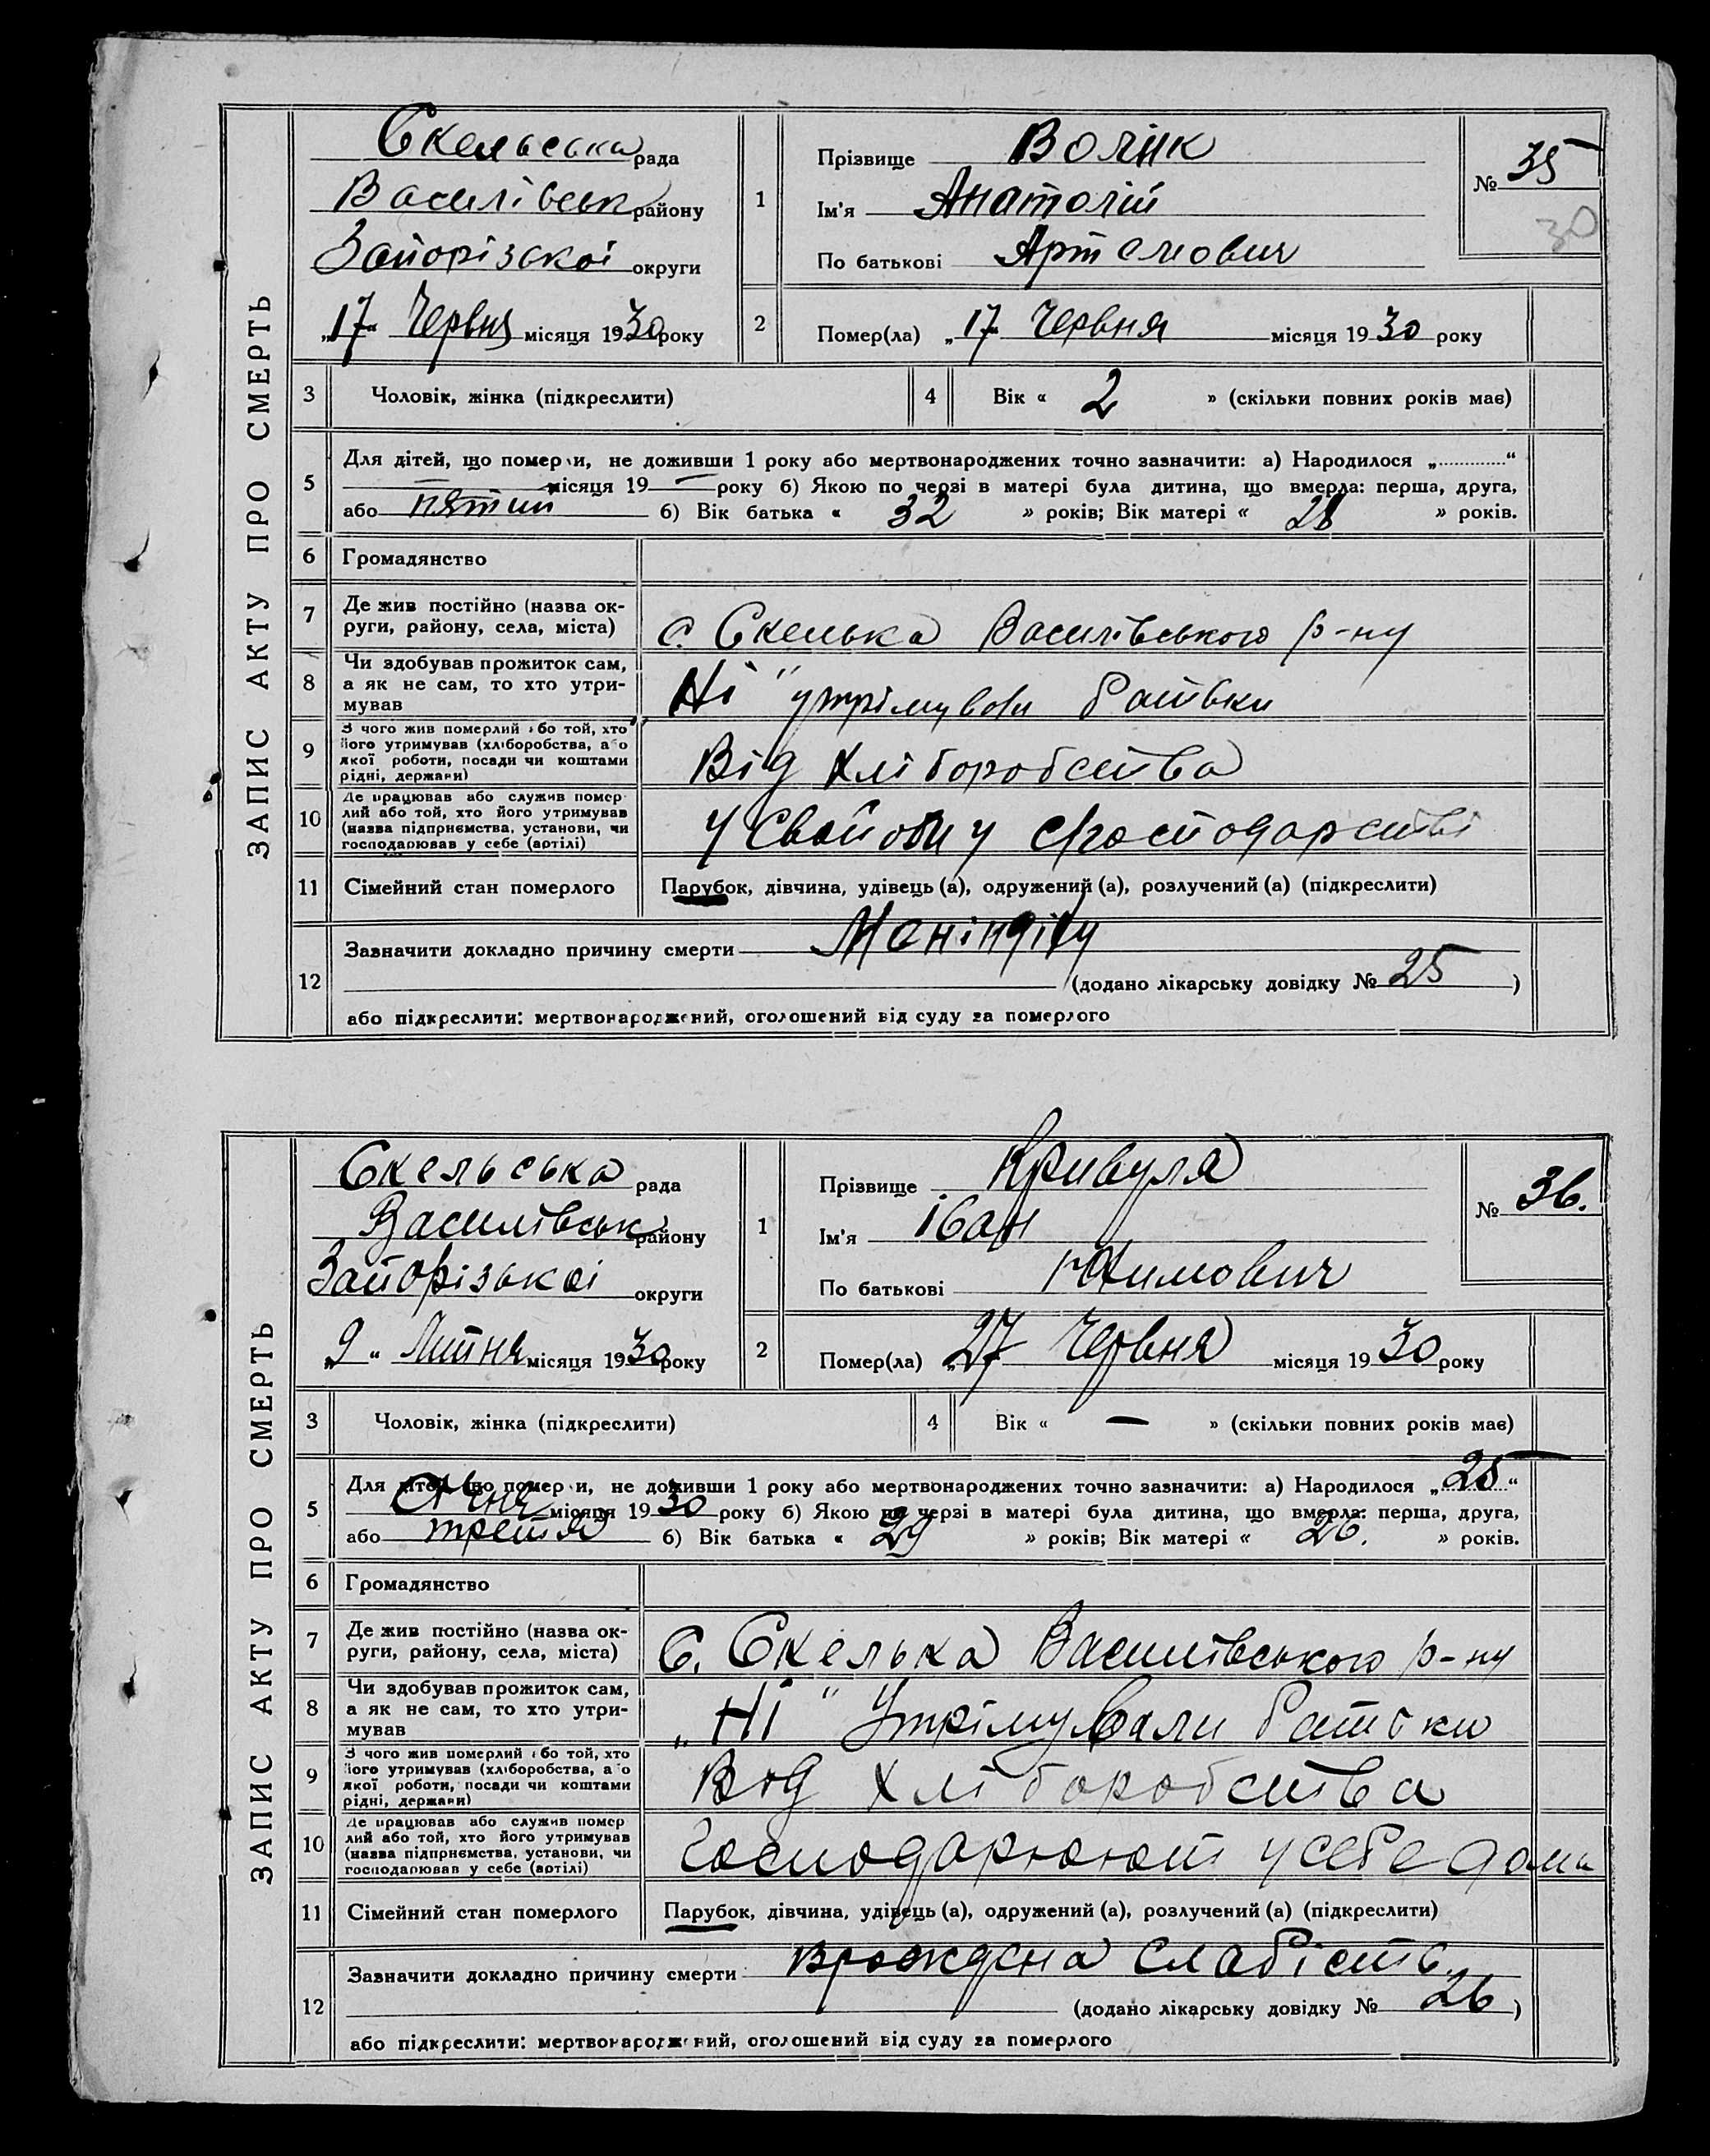 ЗАПИС АКТУ ПРО СМЕРТЬ
Скельська рада
Василівськ району
Запорізскої округи
„17“ Червня місяця 1930 року
1
Прізвище Волик
Ім'я Анатолій
По батькові Артемович
№ 35
30
2
Помер(ла) „17 Червня місяця 1930 року
3 Чоловік, жінка (підкреслити)
4 Вік « 2 » (скільки повних років має)
5 Для дітей, що померли, не доживши 1 року або мертвонароджених точно зазначити: а) Народилося „ “
— місяця 19 — року б) Якою по черзі в матері була дитина, що вмерла: перша, друга,
або пятий б) Вік батька « 32 » років; Вік матері « 28 » років.
6 Громадянство
7 Де жив постійно (назва ок-
руги, району, села, міста)
с. Скелька Василівського р-ну
8 Чи здобував прожиток сам,
а як не сам, то хто утри-
мував
„Ні“ утрімували батьки
9 З чого жив померлий або той, хто
його утримував (хліборобства, або
якої роботи, посади чи коштами
рідні, держави)
Від хліборобства
10 Де працював або служив помер-
лий або той, хто його утримував
(назва підприємства, установи, чи
господарював у себе (артілі)
У господарстві
11 Сімейний стан померлого
Парубок, дівчина, удівець (а), одружений (а), розлучений (а) (підкреслити)
12 Зазначити докладно причину смерти
(додано лікарську довідку № 25 )
або підкреслити: мертвонароджений, оголошений від суду за померлого
ЗАПИС АКТУ ПРО СМЕРТЬ
Скельська рада
Василівськ району
Запорізької округи
„9“ Липня місяця 1930 року
1
Прізвище Кривуля
Ім'я Іван
По батькові
№ 36.
2
Помер(ла) „27 Червня місяця 1930 року
3 Чоловік, жінка (підкреслити)
4 Вік « — » (скільки повних років має)
5 Для дітей, що померли, не доживши 1 року або мертвонароджених точно зазначити: а) Народилося „25“
Січня місяця 1930 року б) Якою по черзі в матері була дитина, що вмерла: перша, друга,
або третя б) Вік батька « 29 » років; Вік матері « 26. » років.
6 Громадянство
7 Де жив постійно (назва ок-
руги, району, села, міста)
С. Скелька Василівського р-ну
8 Чи здобував прожиток сам,
а як не сам, то хто утри-
мував
„Ні“ Утрімували батьки
9 З чого жив померлий або той, хто
його утримував (хліборобства, або
якої роботи, посади чи коштами
рідні, держави)
Від хліборобства
10 Де працював або служив помер
лий або той, хто його утримував
(назва підприємства, установи, чи
господарював у себе (артілі)
Господарюют у себе дома
11 Сімейний стан померлого
Парубок, дівчина, удівець (а), одружений (а), розлучений (а) (підкреслити)
12 Зазначити докладно причину смерти врождена слабість
(додано лікарську довідку № 26 )
або підкреслити: мертвонароджений, оголошений від суду за померлого